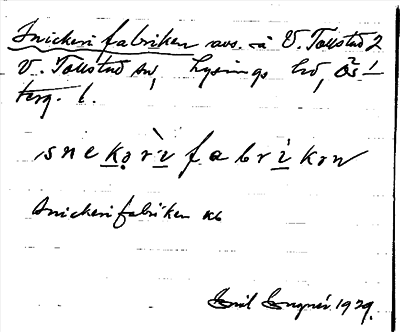 Snickerifabriken avs. å V. Tollstad 2
V. Tollstad sn, Lysings hd, Ös-
terg. l.
snekọrìi fabrìkon
Snickerifabriken kb
Emil Lugnér 1929.